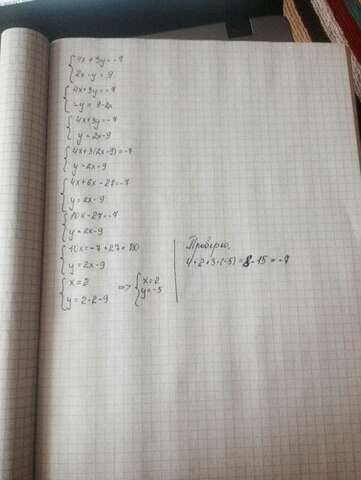 4x+3y=-7
2x-y=9
4x+3y=-7
-y=9-2x
4x+3y=-7
y=2x-9
4x+3(2x-9)=-7
y=2x-9
4x+6x-27=-7
y=2x-9
10x-27=-7
y=2x-9
10x=-7+27=20
y=2x-9
x=2
y=2·2-9
=> x=2
y=-5
Проверка
4·2+3·(-5)=8-15=-7